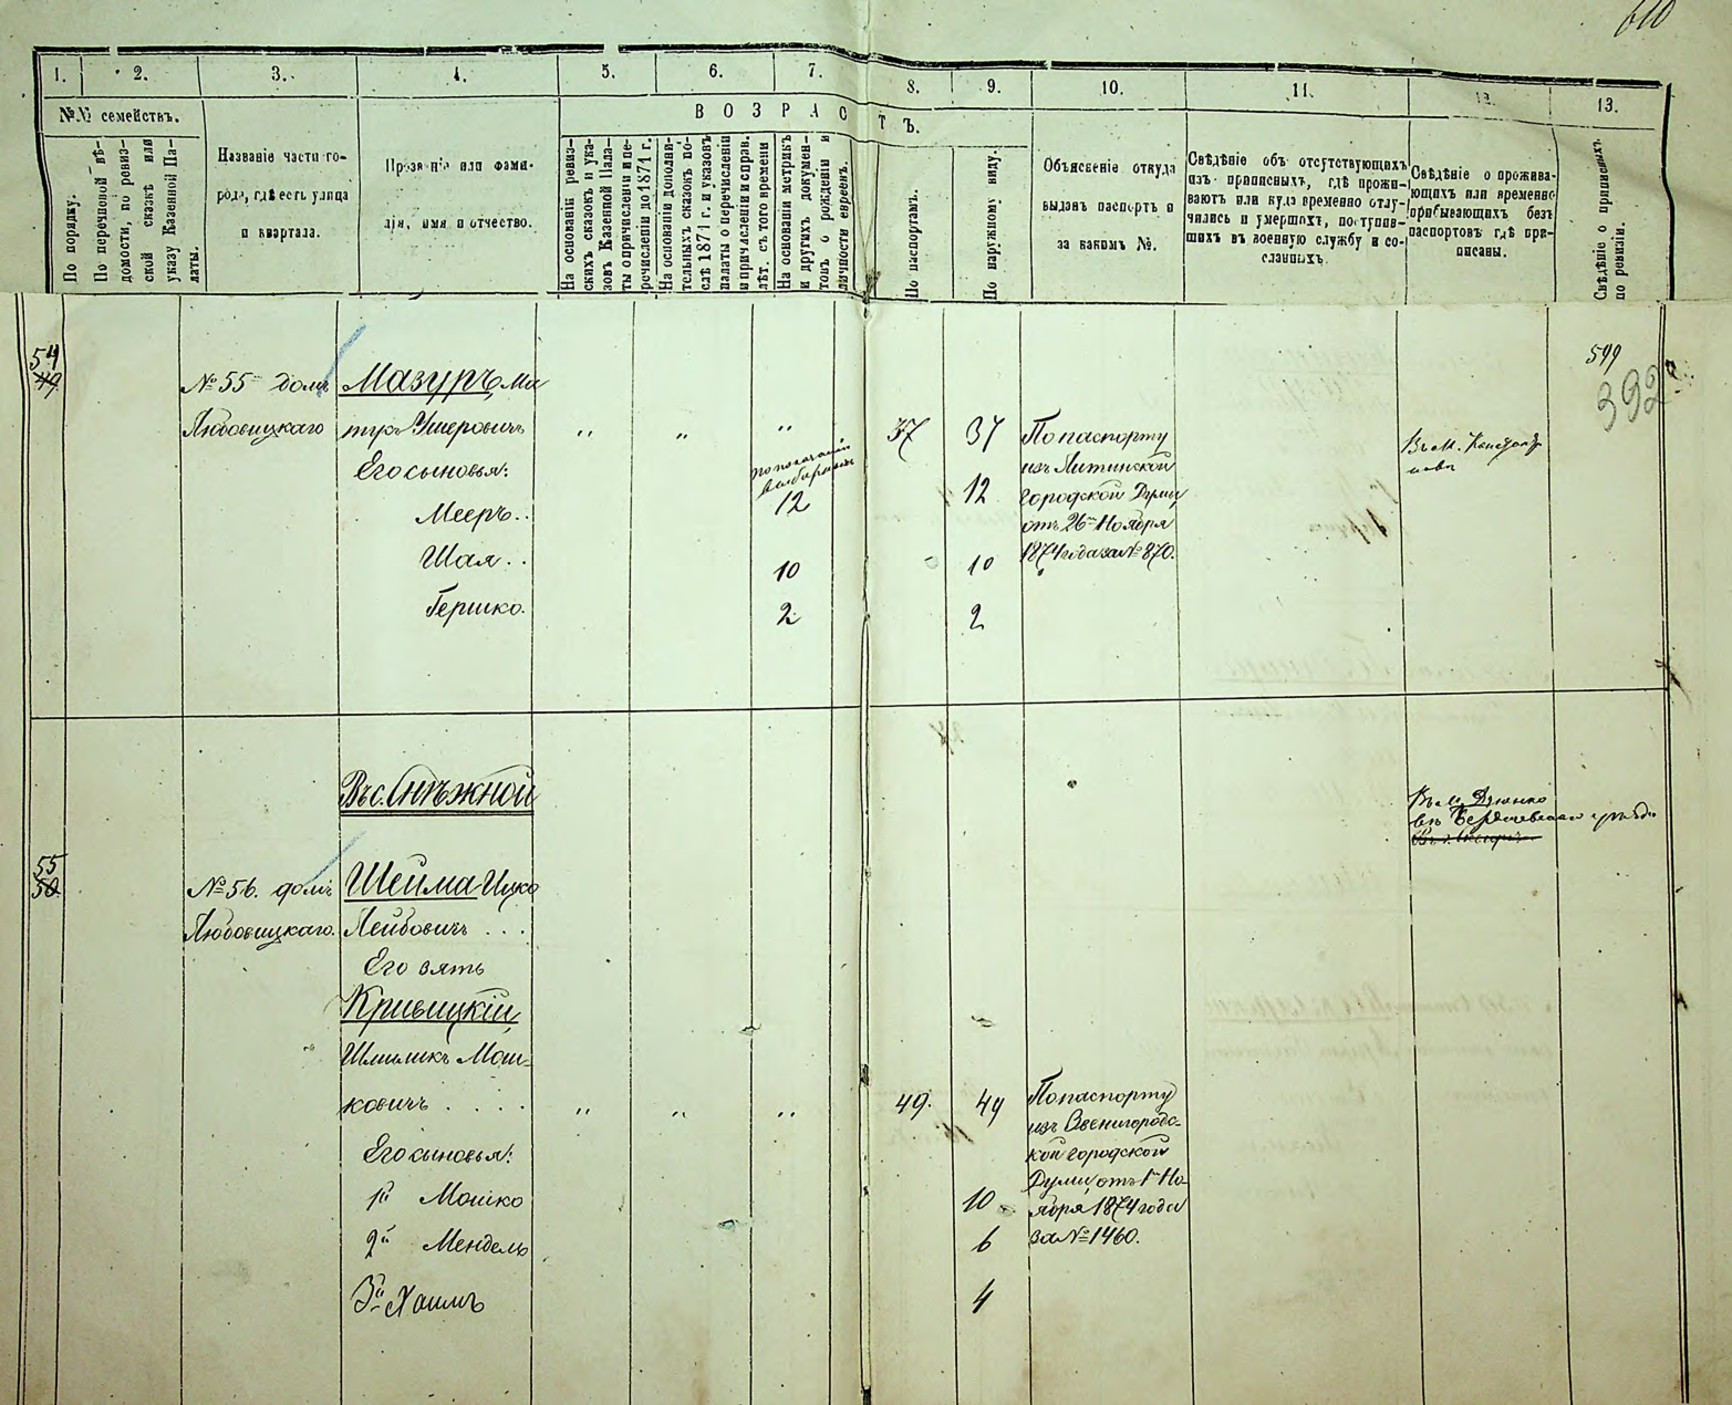 610
1.
2.
3.
4.
5.
6.
7.
8.
9.
10.
11.
12.
13.
№№ семействъ.
ВОЗРАСТЪ.
По порядку.
По перечневой вѣ-
домости, по ревиз-
ской сказкѣ или
указу Казенной Па-
латы.
Названіе части го-
рода, гдѣ есть улица
и квартала.
Прозваніе или фами-
лія, имя и отчество.
На основаніи ревиз-
скихъ сказокъ и ука-
зовъ Казенной Пала-
ты о причисленіи и пе-
речисленіи до 1871 г.
На основаніи дополни-
тельныхъ сказокъ по-
слѣ 1871 г. и указовъ
палаты о перечисленіи
и причисленіи и справ.
лѣт. съ того времени
На основаніи метрикъ
и другихъ докумен-
товъ о рожденіи и
личности евреевъ.
По паспортамъ.
По наружному виду.
Объясненіе откуда
выданъ паспортъ и
за какимъ №.
Свѣдѣніе объ отсутствующихъ
изъ приписныхъ, гдѣ прожи-
ваютъ или куда временно отлу-
чились и умершихъ, поступив-
шихъ въ военную службу и со-
сланныхъ.
Свѣдѣніе о прожива-
ющихъ или временно
прибывающихъ безъ
паспортовъ гдѣ при-
писаны.
Свѣдѣніе о приписныхъ
по ревизіи.
54
49.
№ 55 домъ
Любовицкаго
Мазуръ, Ма
тук Ушеровичъ
" " " 37 37
Его сыновья:
по показанію
Мееръ . . 12 12
Шая . . 10 10
Гершко. 2 2
По паспорту
изъ Литинской
городской Думы
отъ 26го Ноября
1874 года за № 870.
Въ м. Константи
нов
599
392
Въ с. Снѣжной
Въ м. Дзюнко
въ Бердичевскаго уѣзда
55
50.
№ 56. домъ
Любовицкаго.
Шейма Ицко
Лейбовичъ . . .
Его зять
Кривицкій,
Шмиликъ Мош-
ковичъ . . . . " " " 49. 49
Его сыновья:
1й Мошко 10
2й Мендель 6
3й Хаимъ 4
По паспорту
изъ Звенигородс-
кой городской
Думы, отъ 1го Но-
ября 1874 года
за № 1460.